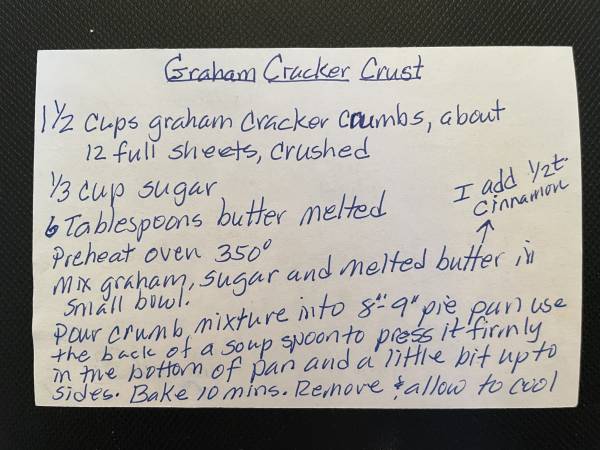 Graham Cracker Crust
1 1/2 cups graham cracker crumbs, about
12 full sheets, crushed
1/3 cup sugar
I add 1/2 t.
cinnamon
6 Tablespoons butter melted
Preheat oven 350°
Mix graham, sugar and melted butter in
small bowl.
Pour crumb mixture into 8"-9" pie pan use
the back of a soup spoon to press it firmly
in the bottom of pan and a little bit up to
sides. Bake 10 mins. Remove & allow to cool